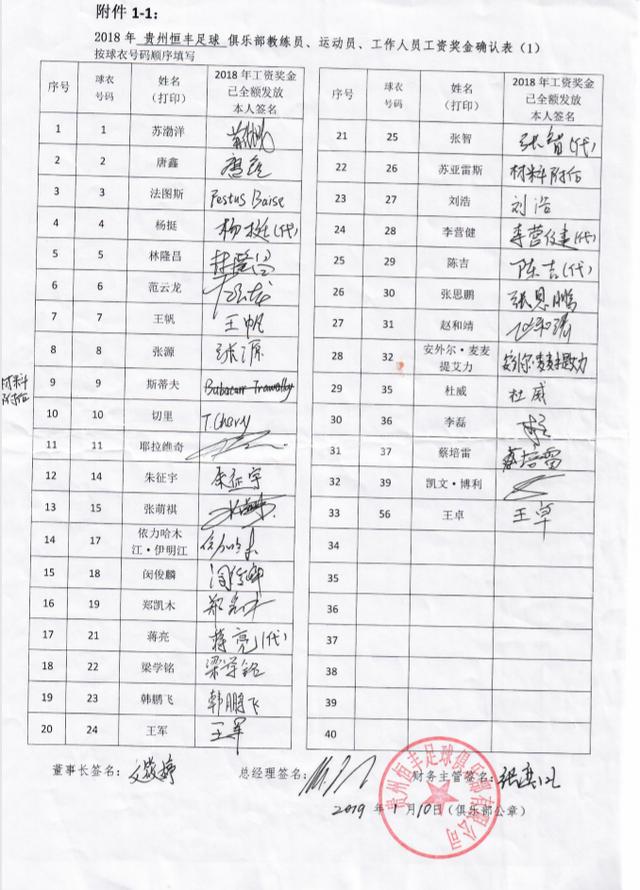 附件 1-1：
2018 年 贵州恒丰足球 俱乐部教练员、运动员、工作人员工资奖金确认表（1）
按球衣号码顺序填写
序号 球衣号码 姓名（打印） 2018 年工资奖金已全额发放本人签名
1 1 苏渤洋
2 2 唐鑫 唐鑫
3 3 法图斯 Festus Baise
4 4 杨挺 杨挺(代)
5 5 林隆昌 林隆昌
6 6 范云龙 范云龙
7 7 王帆 王帆
8 8 张源 张源
材料附后 9 9 斯蒂夫
10 10 切里 T.Chery
11 11 耶拉维奇
12 14 朱征宇 朱征宇
13 15 张萌祺
14 17 依力哈木江·伊明江
15 18 闵俊麟 闵俊麟
16 19 郑凯木 郑凯木
17 21 蒋亮 蒋亮(代)
18 22 梁学铭 梁学铭
19 23 韩鹏飞 韩鹏飞
20 24 王军 王军
序号 球衣号码 姓名（打印） 2018 年工资奖金已全额发放本人签名
21 25 张智 张智(代)
22 26 苏亚雷斯 材料附后
23 27 刘浩 刘浩
24 28 李营健 李营健(代)
25 29 陈吉 陈吉(代)
26 30 张思鹏 张思鹏
27 31 赵和靖 赵和靖
28 32 安外尔·麦麦提艾力 安外尔·麦麦提艾力
29 35 杜威 杜威
30 36 李磊
31 37 蔡培雷 蔡培雷
32 39 凯文·博利
33 56 王卓 王卓
34
35
36
37
38
39
40
董事长签名： 总经理签名： 财务主管签名：
2019 年 1 月 10 日（俱乐部公章）
贵州恒丰足球俱乐部有限公司